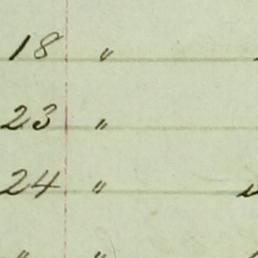 18 "
23 "
24 "
" "